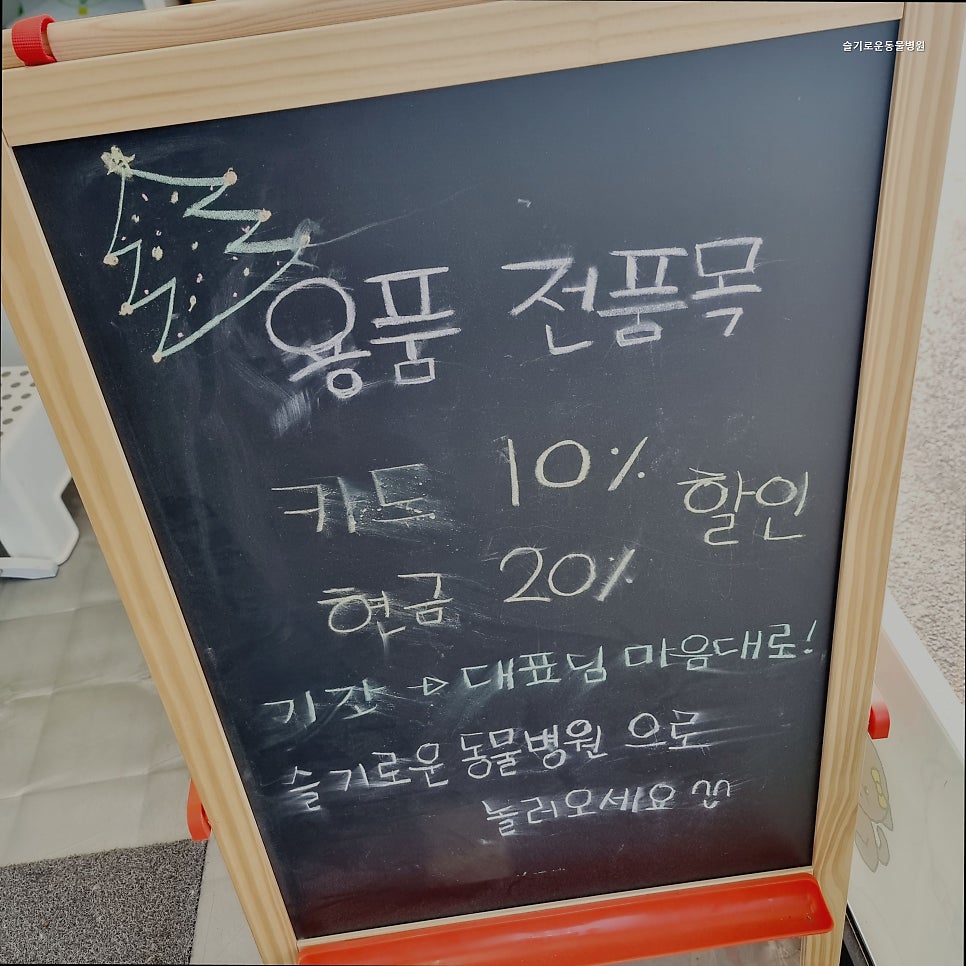 슬기로운동물병원
용품 전품목
카드 10% 할인
현금 20%
기간 → 대표님 마음대로!
슬기로운 동물병원 으로
놀러오세요 ^^